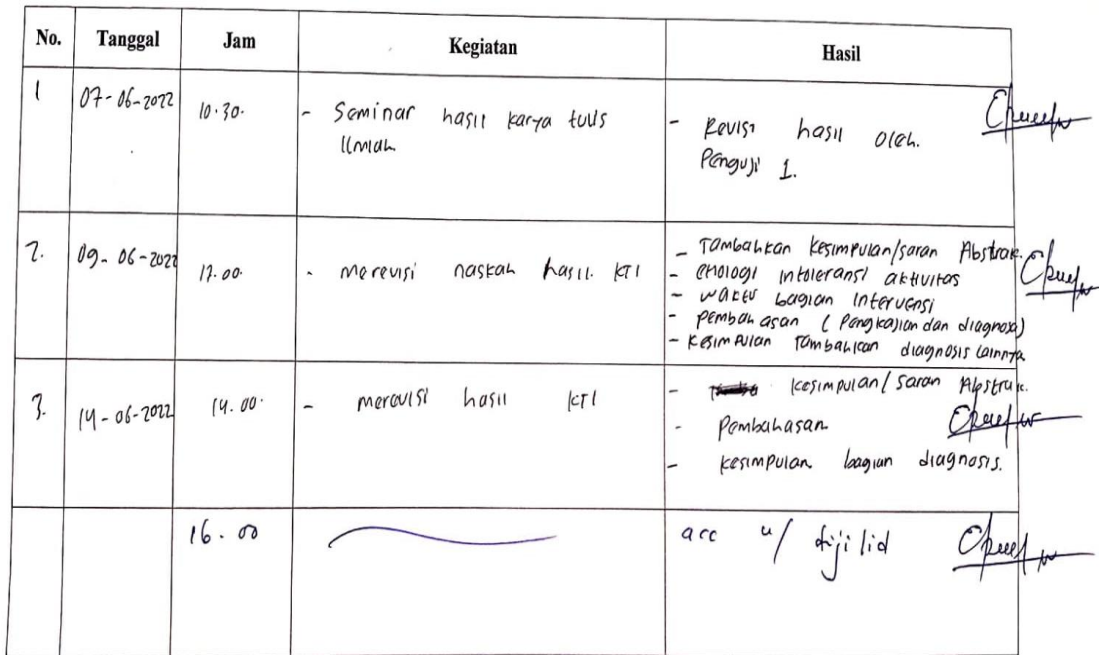 No. Tanggal Jam Kegiatan Hasil
1 07-06-2022 10.30. - Seminar hasil karya tulis - Revisi hasil oleh.
Ilmiah Penguji 1.
2. 09-06-2022 - merevisi naskah hasil KTI - Tambahkan kesimpulan/saran Abstrak.
- etiologi intoleransi aktivitas
- waktu bagian intervensi
- pembahasan (pengkajian dan diagnosa)
- kesimpulan tambahkan diagnosis lainnya
3. 14-06-2022 14.00. - merevisi hasil KTI - kesimpulan/saran Abstrak.
- Pembahasan
- kesimpulan bagian diagnosis.
16.00 acc u/ dijilid